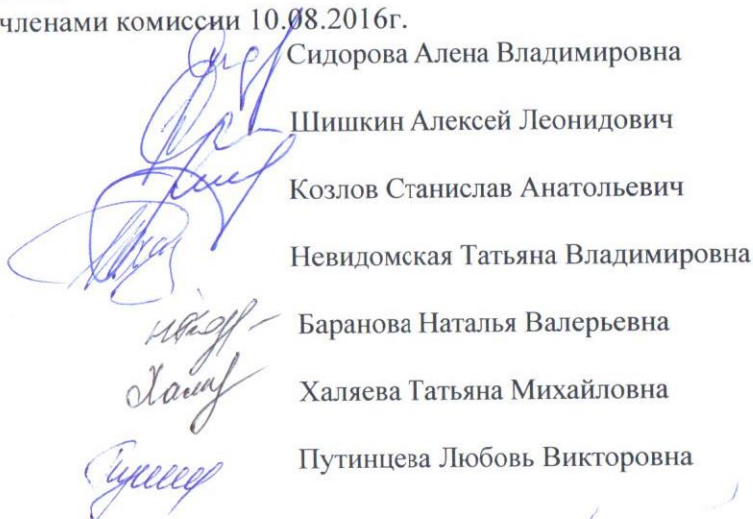 членами комиссии 10.08.2016г.
Сидорова Алена Владимировна
Шишкин Алексей Леонидович
Козлов Станислав Анатольевич
Невидомская Татьяна Владимировна
Баранова Наталья Валерьевна
Халяева Татьяна Михайловна
Путинцева Любовь Викторовна